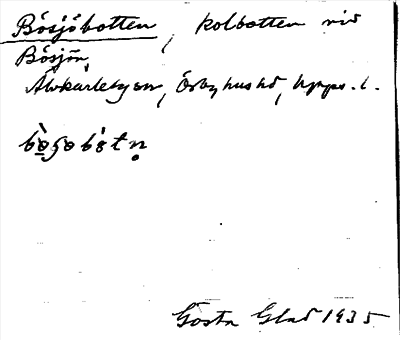 Bösjöbotten, kolbotten vid
Bösjön,
Älvkarleby sn, Örbyhus hd, Upps. l.
bøʂøbòtn̥
Gösta Glad 1935